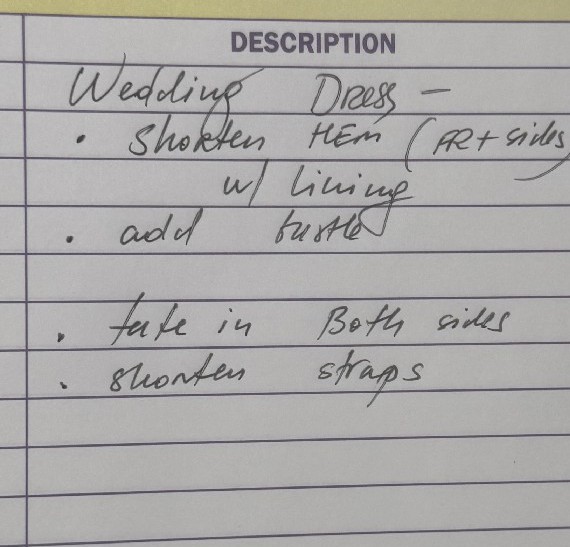 DESCRIPTION
Wedding Dress -
• Shorten HEm (FR + sides)
w/ lining
• add bustle
• take in Both sides
• shorten straps